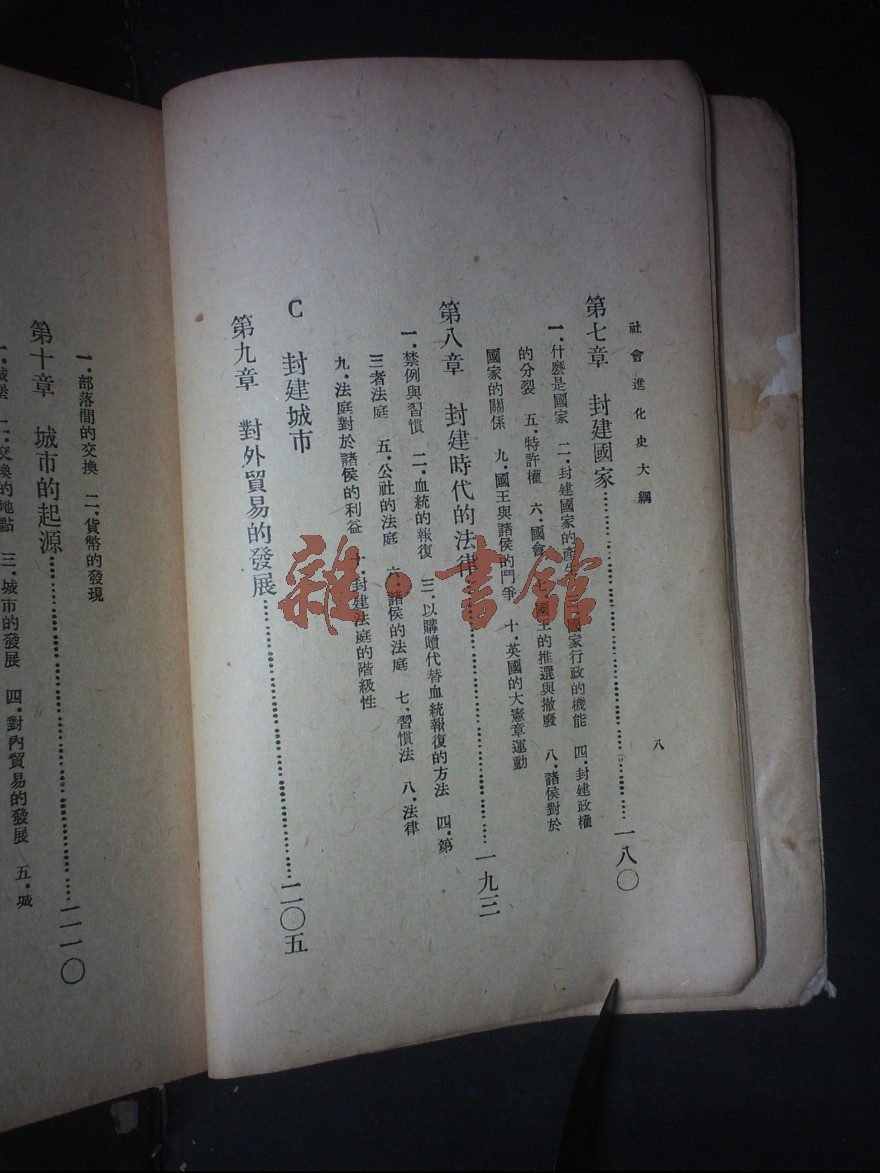 社會進化史大綱
八
第七章　封建國家……一八〇
一・什麼是國家　二・封建國家的產生　國家行政的機能　四・封建政權
的分裂　五・特許權　六・國會　七・國王的推選與撤廢　八・諸侯對於
國家的關係　九・國王與諸侯的鬥爭　十・英國的大憲章運動
第八章　封建時代的法律……一九三
一・禁例與習慣　二・血統的報復　三・以購贖代替血統報復的方法　四・第
三者法庭　五・公社的法庭　六・諸侯的法庭　七・習慣法　八・法律
九・法庭對於諸侯的利益　十・封建法庭的階級性
C　封建城市
第九章　對外貿易的發展……二〇五
一・部落間的交換　二・貨幣的發現
第十章　城市的起源……二一〇
一・城堡　二・交換的地點　三・城市的發展　四・對內貿易的發展　五・城
雜・書館